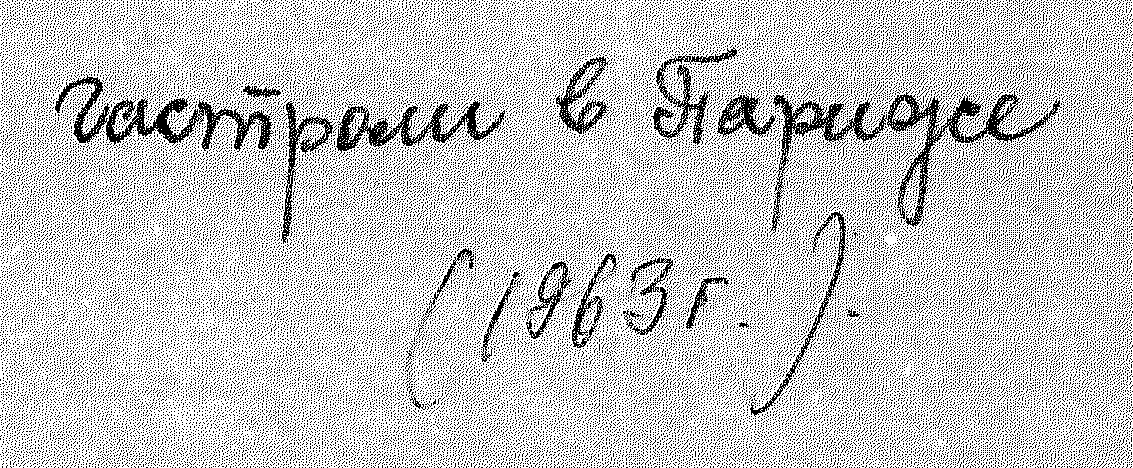 гастроли в Париже
(1963 г.).